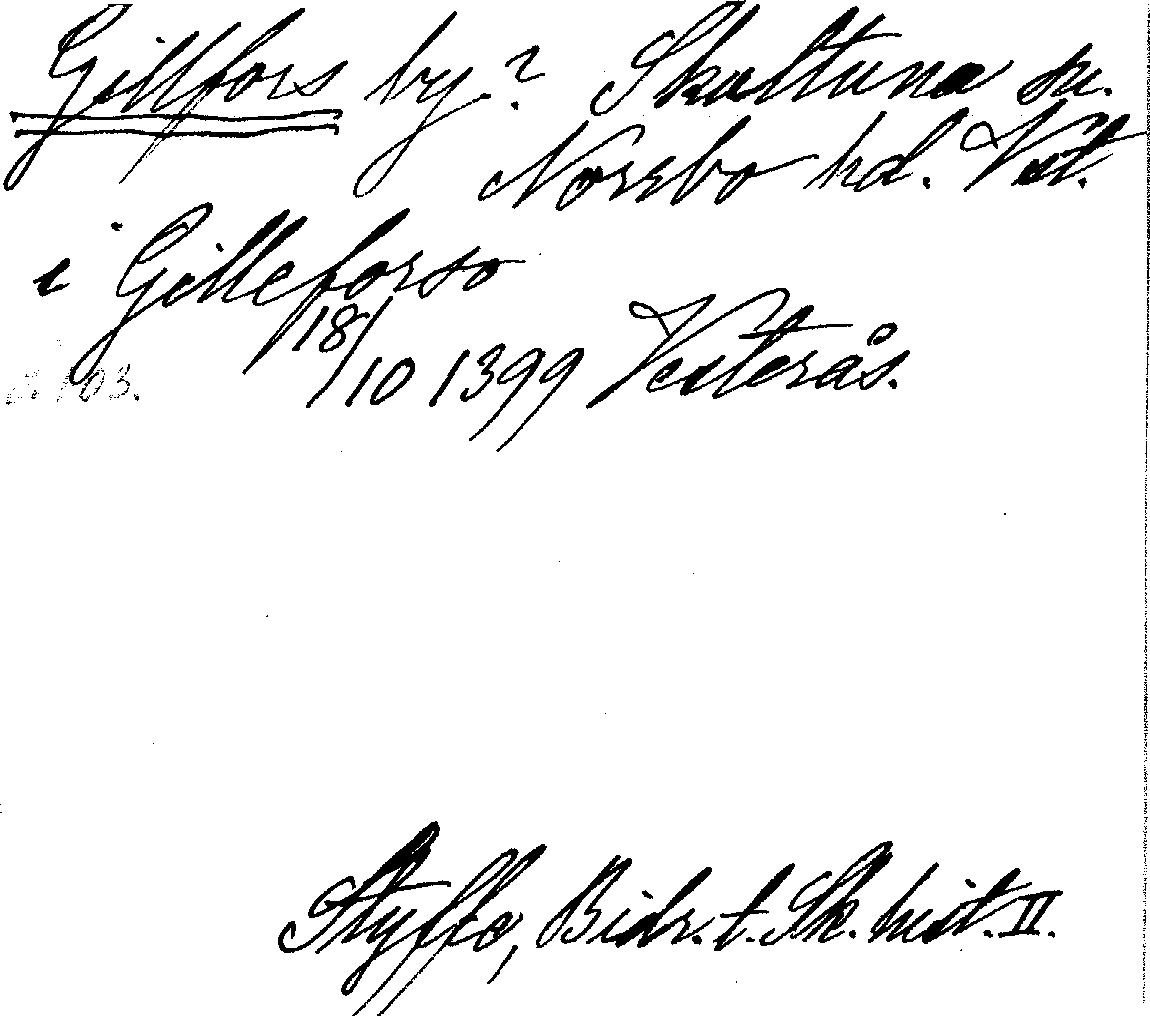 Gillfors by? Skultuna sn.
Norrbo hd. Vstm.
i Gilleforso
18/10 1399 Vesterås.
s. 103.
Styffe, Bidr. t. Sk. hist. II.